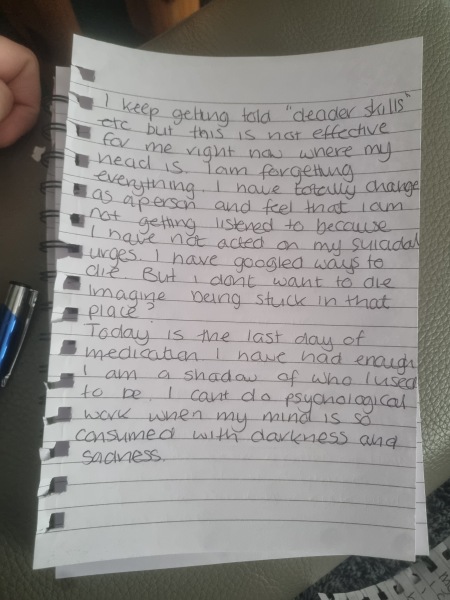 I keep getting told "deader skills"
etc but this is not effective
for me right now where my
head is. I am forgetting
everything. I have totally change
as a person and feel that i am
not getting listened to because
I have not acted on my suiadal
urges. I have googled ways to
die. But i dont want to die
imagine being stuck in that
place?
Today is the last day of
medication I have had enough
I am a shadow of who I used
to be. I cant do psychological
work when my mind is so
consumed with darkness and
sadness.